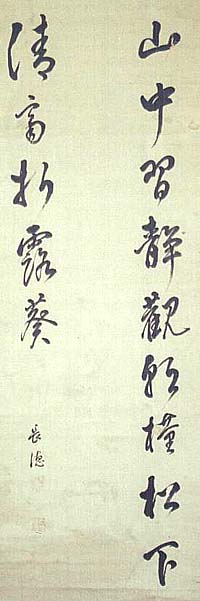 山中習靜觀朝槿松下
清齋折露葵
長徳